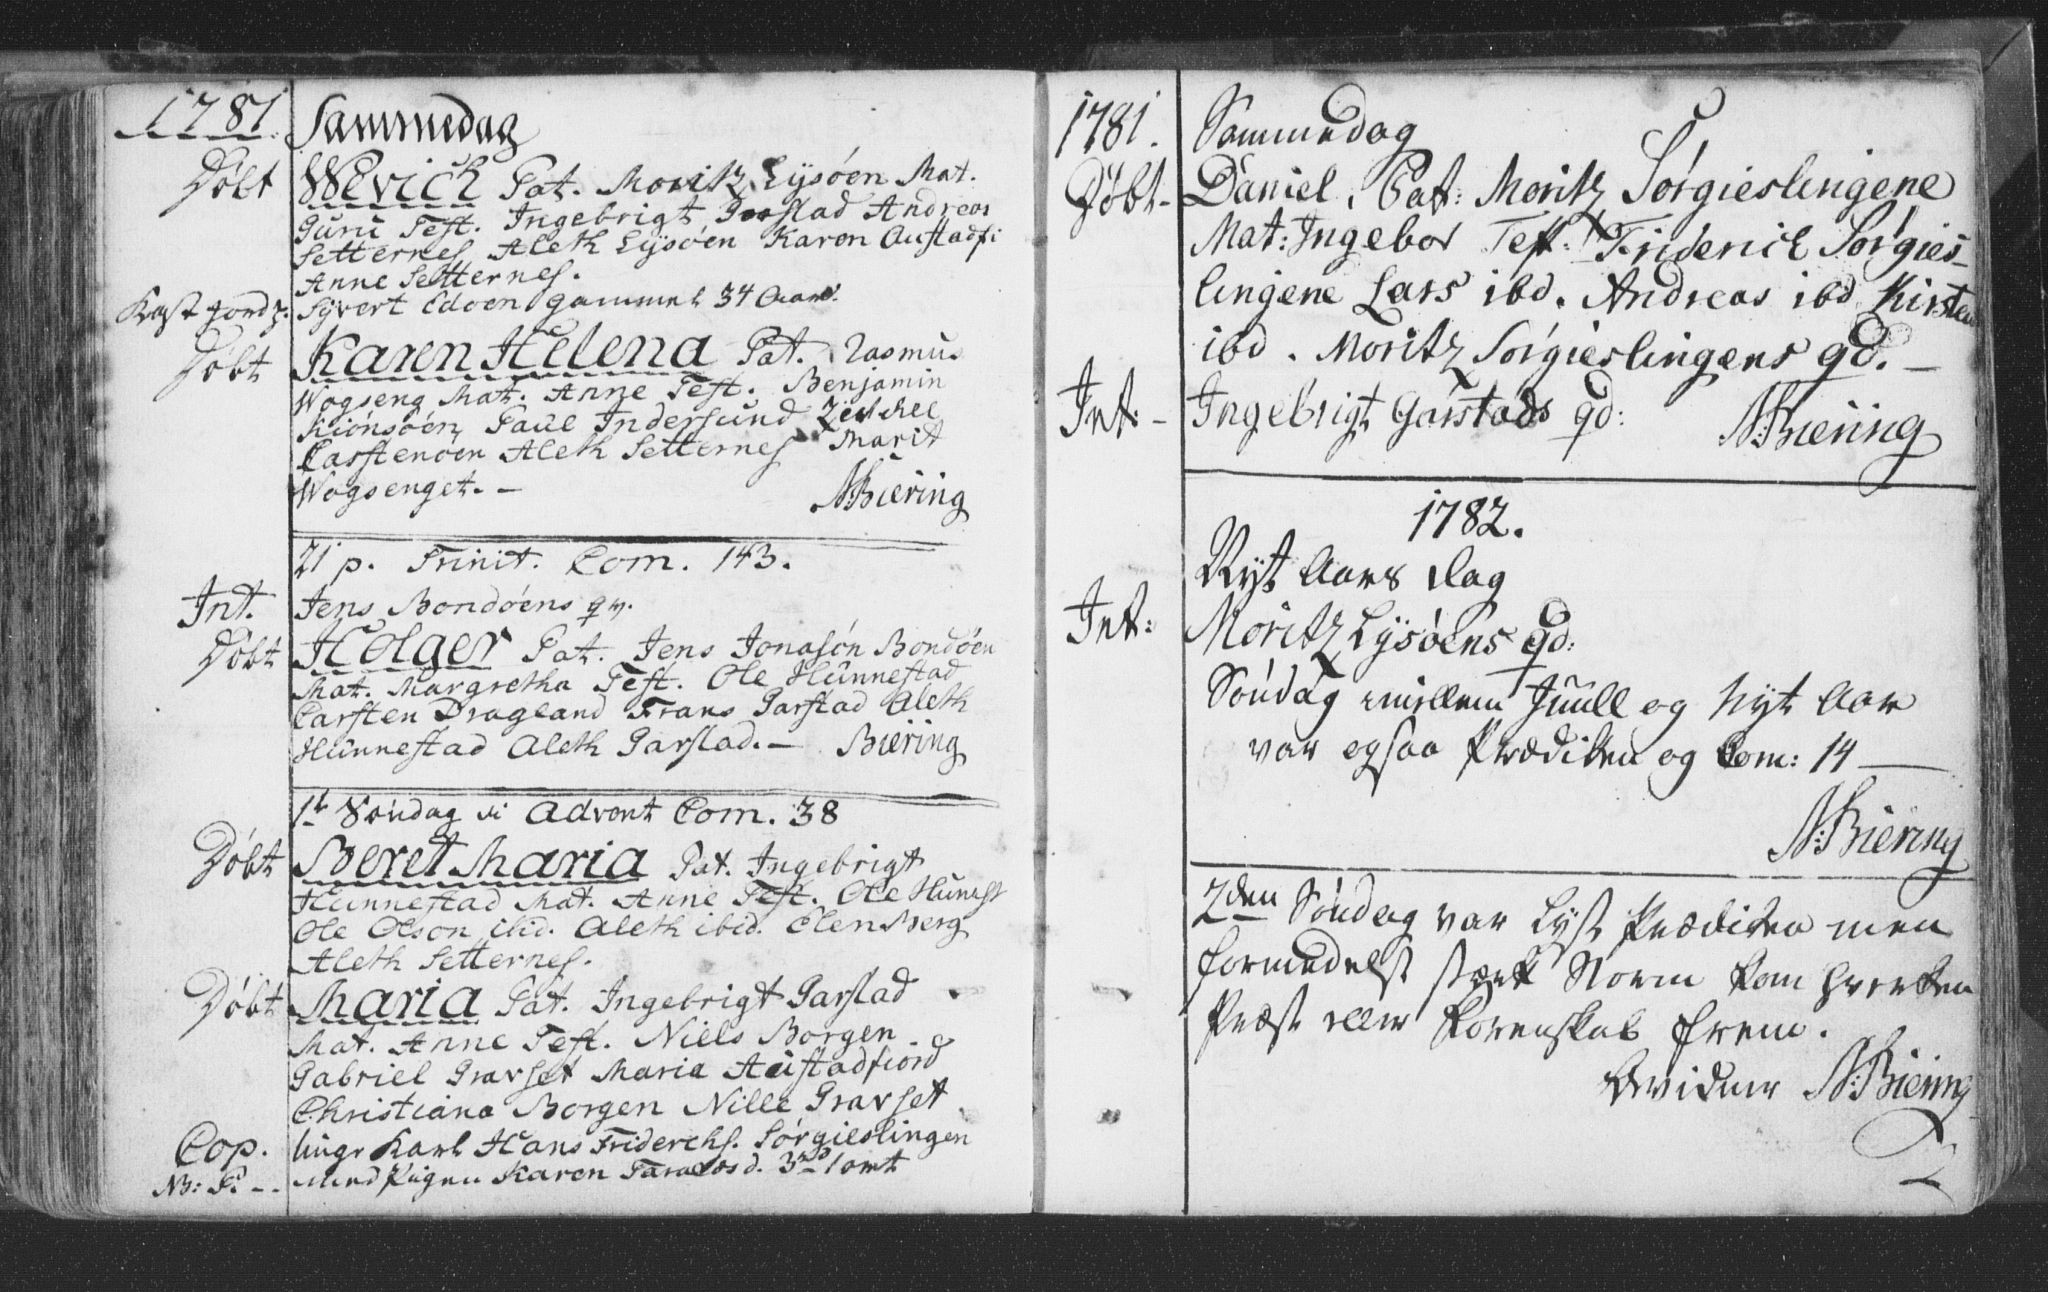 1781. Sammedag
Döbt Werich Pat. Moritz Lÿsöen Mat.
Guru Test. Ingebrigt Garstad Andreas
Setternes Aleth Lÿsöen Karen Austadfi
Anne Setternes.
Kast jord p: Sÿvert Edöen gammel 34 Aar.
Döbt Karen Helena Pat. Rasmus
Wogseng Mat. Anne Test. Benjamin
Kiönsöen, Paul Indersund
Carstenöen Aleth Setternes Marit
Wogsenget. –
N: Biering
21 p. Trinit. Com. 143.
Int. Jens Bondöens qv.
Döbt Holger Pat. Jens Jonasön Bondöen
Mat. Margretha Test. Ole Hünnestad
Carsten Drageland Frans Garstad Aleth
Hünnestad Aleth Garstad. – Biering
1te Söndag i Advent Com. 38
Döbt Beret Maria Pat. Ingebrigt
Hünnestad Mat. Anne Test. Ole Hunest
Ole Olson ibid. Aleth ibid. Elen Berg
Aleth Setternes.
Döbt Maria Pat. Ingebrigt Garstad
Mat. Anne Test. Niels Borgen
Gabriel Gravset Maria Austadfiord
Christiana Borgen Nille Gravset
Cop. Unge Karl Hans Friderchs. Sörgieslingen
NB: F. - - med Pigen Karen
1781. Sammedag
Döbt - Daniel. Pat: Moritz Sörgieslingene
Mat: Ingebor Test: Friderich Sörgies-
lingene Lars ibd. Andreas ibd Kirsten
ibd. Moritz Sörgieslingens qd. –
Int: - Ingebrigt Garstads qd:
N: Biering
1782.
Nyt Aars Dag
Int: Moritz Lÿsöens qd:
Söndag imellem Juull og Nyt Aar
var ogsaa Prædiken og Com: 14 —
N: Biering
2den Söndag var lyst Prædiken men
formedelst stærk Storm kom hverken
Præst eller Korenskab frem.
N: Biering